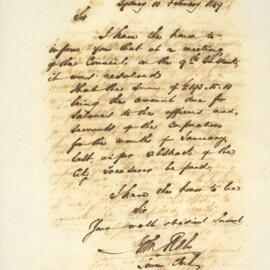 Sydney 10 February 1849
Sir
I have the honor to
inform you that at a meeting
of the Council on the 9th Instant
it was resolved
that the sum of
being the amount due for
Salaries to the officers and
servants of the corporation
for the month of January
last as per abstract of the
City Treasurer be paid.
I have the honor to be
Sir
Your most obedient Servant
Town Clerk